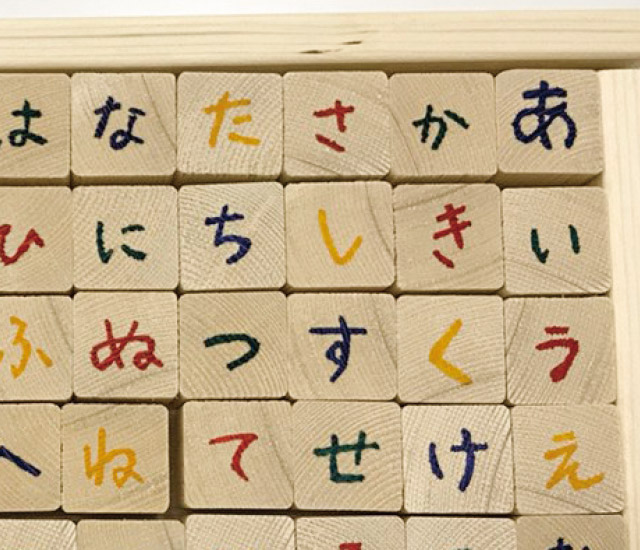 あいうえ
かきくけ
さしすせ
たちつて
なにぬね
はひふへ